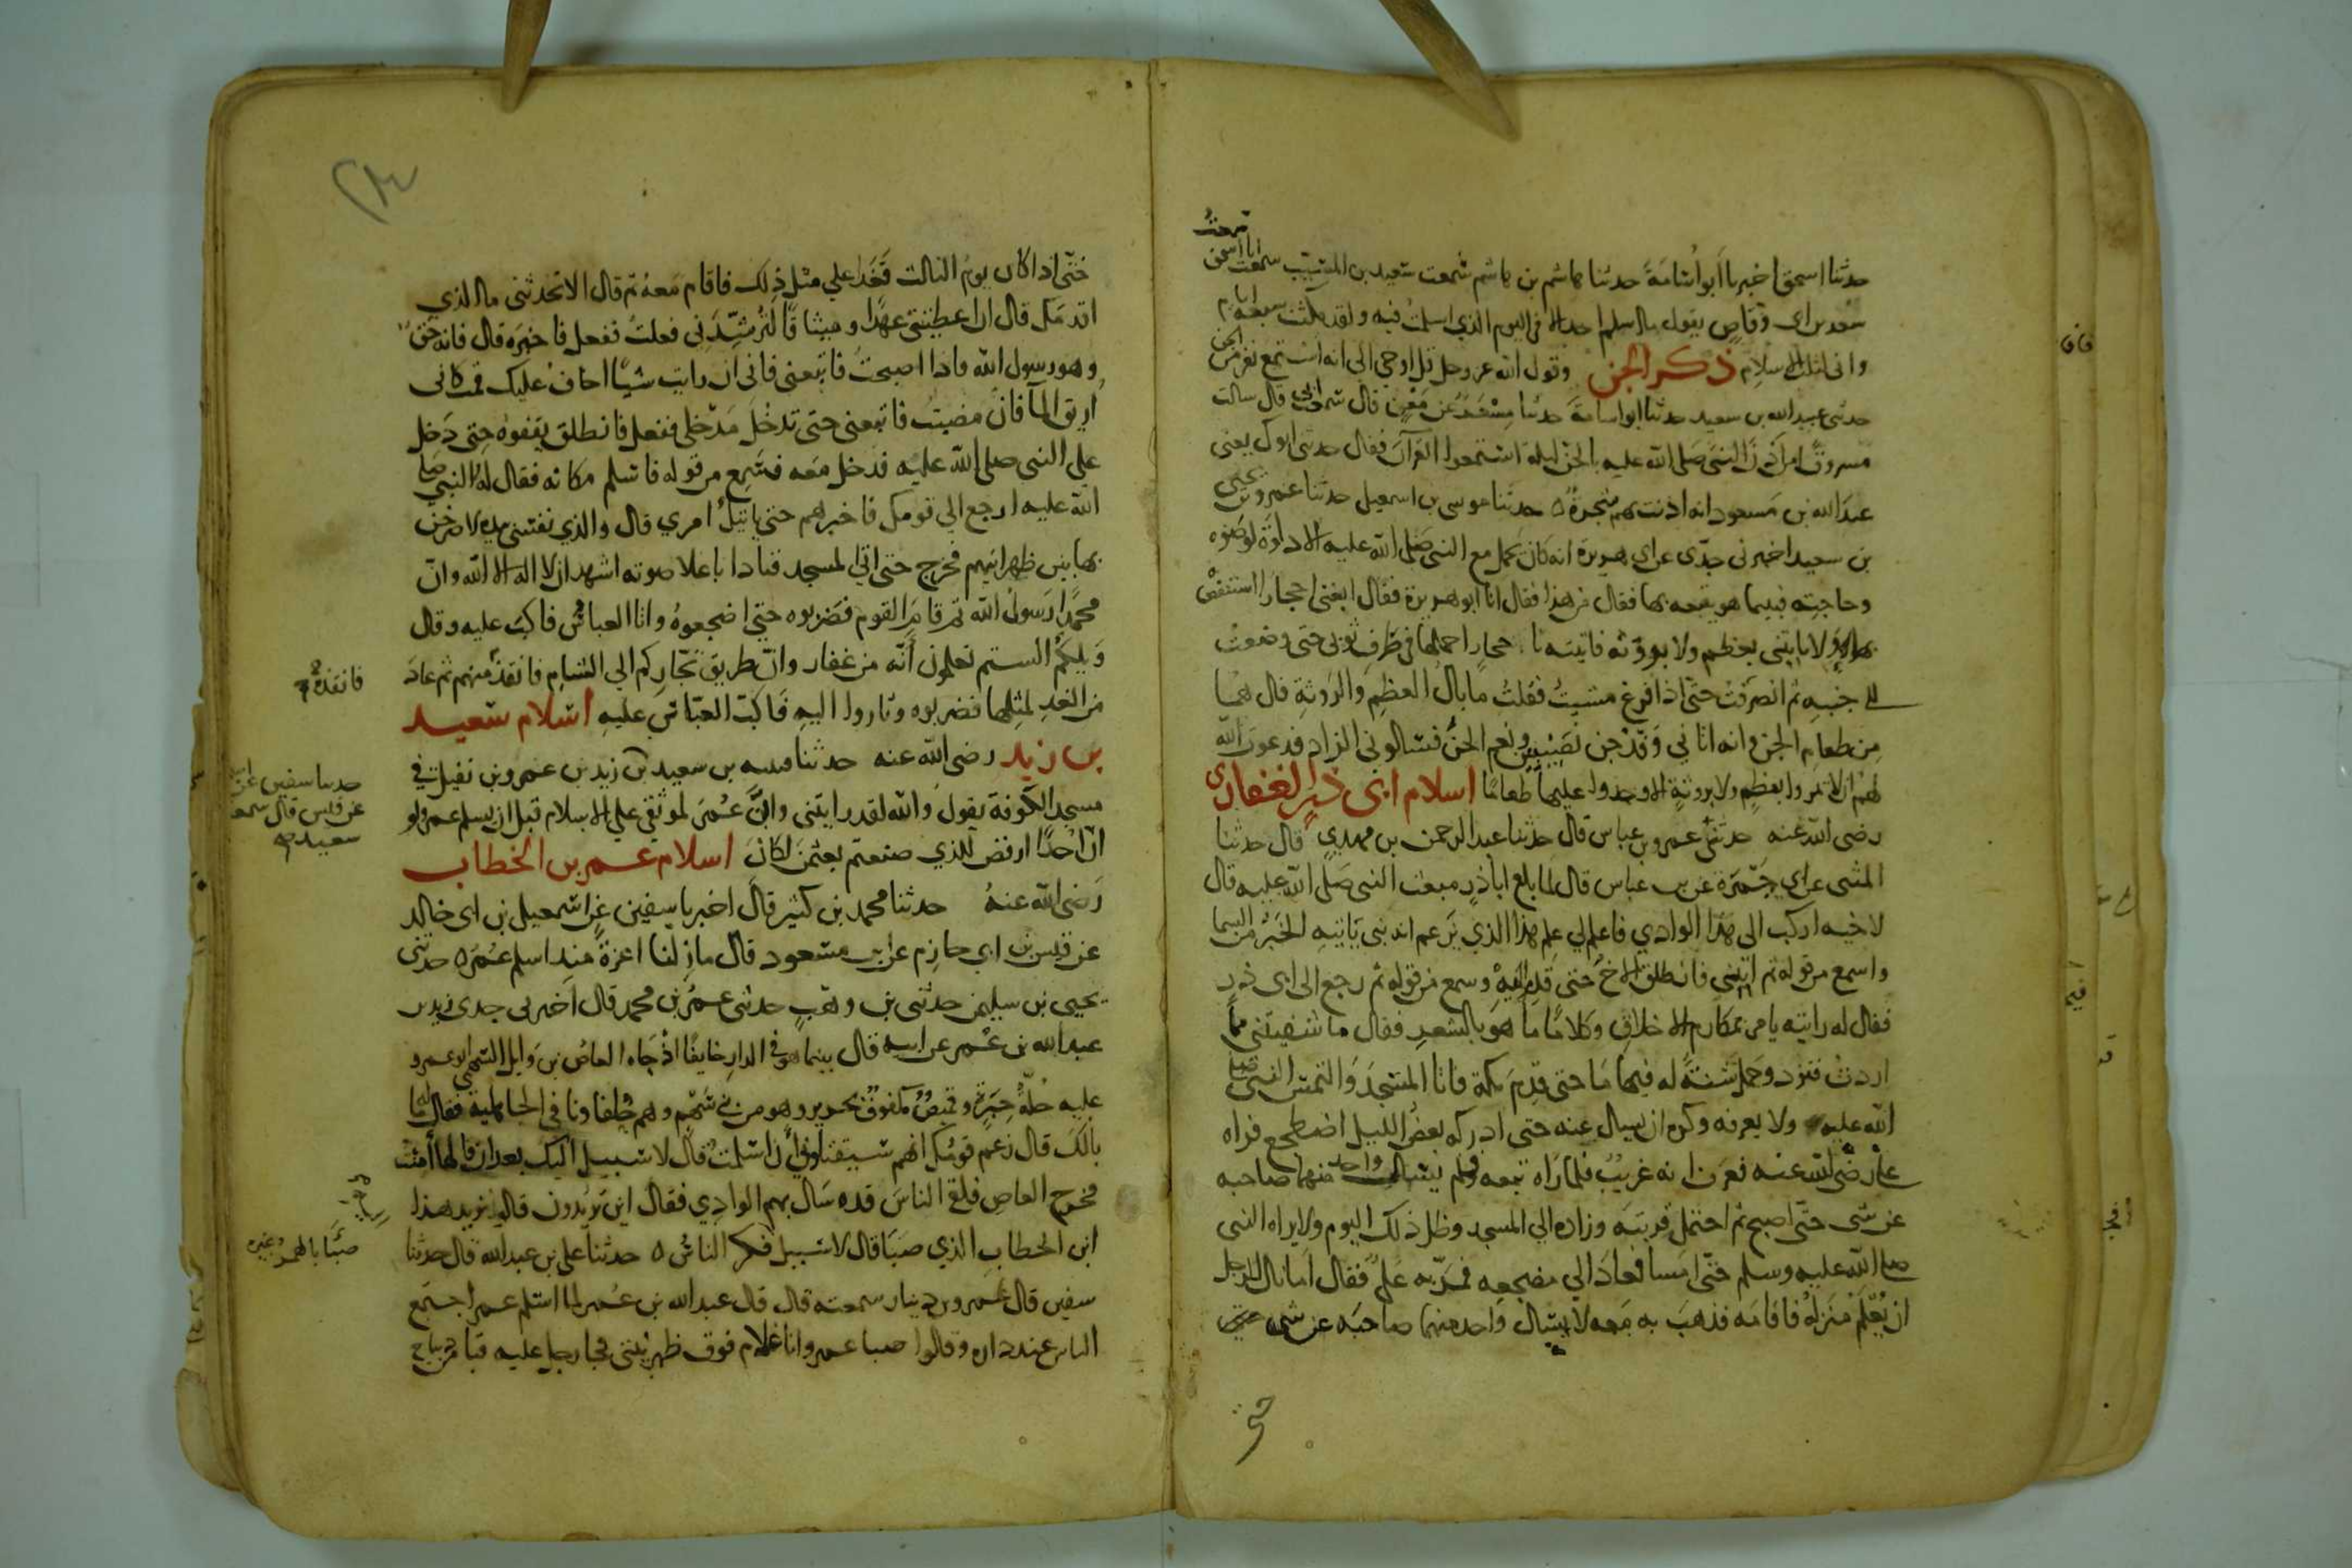 حدثنا اسحق اخبرنا ابو اسامة حدثنا هاشم بن هاشم سمعت سعيد بن المسيب سمعت ابا اسحق
سعد بن ابى وقاص يقول ما اسلم احد الا فى اليوم الذي اسلمت فيه ولقد مكثت سبعة ايام
وانى لثلث الاسلام ذكر الجن وقول الله عز وجل قل اوحي الي انه استمع نفر من الجن
حدثنى عبيد الله بن سعيد حدثنا ابو اسامة حدثنا مسعر عن معن قال سمعت ابى قال سالت
مسروقا من اذن النبي صلى الله عليه بالجن ليلة استمعوا القرآن فقال حدثني ابوك يعني
عبد الله بن مسعود انه اذنت بهم شجرة ه حدثنا موسى بن اسمعيل حدثنا عمرو بن يحيى
بن سعيد اخبرني جدي عن ابي هريرة انه كان يحمل مع النبي صلى الله عليه الاداوة لوضوه
وحاجته فبينما هو يتبعه بها فقال من هذا فقال انا ابو هريرة فقال ابغنى احجارا استنفض
بها ولا تاتني بعظم ولا بروثة فاتيته باحجار احملها في طرف ثوبي حتى وضعت
الى جنبه ثم انصرفت حتى اذا فرغ مشيت فقلت ما بال العظم والروثة قال هما
من طعام الجن وانه اتاني وفد جن نصيبين ونعم الجن فسالوني الزاد فدعوت الله
لهم ان لا يمروا بعظم ولا بروثة الا وجدوا عليها طعاما اسلام ابى ذر الغفارى
رضى الله عنه حدثني عمرو بن عباس قال حدثنا عبد الرحمن بن مهدي قال حدثنا
المثنى عن ابي جمرة عن بن عباس قال لما بلغ اباذر مبعث النبي صلى الله عليه قال
لاخيه اركب الى هذا الوادي فاعلم لي علم هذا الذي يزعم انه نبي ياتيه الخبر من السما
واسمع من قوله ثم ايتني فانطلق الاخ حتى قدمه وسمع من قوله ثم رجع الى ابى ذر
فقال له رايته يامر بمكارم الاخلاق وكلاما ما هو بالشعر فقال ما شفيتني مما
اردت فتزود وحمل شنة له فيها ما حتى قدم مكة فاتا المسجد والتمس النبي صلى
الله عليه ولا يعرفه وكره ان يسال عنه حتى ادركه بعض الليل اضطجع فراه
على رضي الله عنه فعرف انه غريب فلما راه تبعه ولم يسال واحد منهما صاحبه
عن شى حتى اصبح ثم احتمل قربته وزاده الي المسجد وظل ذلك اليوم ولا يراه النبى
صلى الله عليه وسلم حتى امسا فعاد الي مضجعه فمر به علي فقال اما نال للرجل
ان يعلم منزله فاقامه فذهب به معه لا يسال واحد منهما صاحبه عن شى
حتى
حتى اذا كان يوم الثالث فغدا علي مثل ذلك فاقام معه ثم قال الا تحدثنى ما الذي
اقدمك قال ان اعطيتني عهدا وميثاقا لترشدني فعلت ففعل فاخبره قال فانه حق
وهو رسول الله فاذا اصبحت فاتبعنى فاني ان رايت شيا اخاف عليك قمت كانى
اريق الما فان مضيت فاتبعنى حتى تدخل مدخلي ففعل فانطلق يقفوه حتى دخل
على النبى صلى الله عليه فدخل معه فسمع من قوله فاسلم مكانه فقال له النبي صلى
الله عليه ارجع الي قومك فاخبرهم حتى ياتيك امري قال والذي نفسى بيده لاصرخن
بها بين ظهرانيهم فخرج حتى اتى المسجد فنادا باعلا صوته اشهد ان لا اله الا الله وان
محمدا رسول الله ثم قام القوم فضربوه حتى اضجعوه واتا العباس فاكب عليه وقال
ويلكم الستم تعلمون انه من غفار وان طريق تجاركم الي الشام فانقذه منهم ثم عاد
من الغد لمثلها فضربوه وثاروا اليه فاكب العباس عليه اسلام سعيد
بن زيد رضى الله عنه حدثنا قتيبة بن سعيد بن زيد بن عمرو بن نفيل في
مسجد الكوفة يقول والله لقد رايتنى وان عمر لموثقي على الاسلام قبل ان يسلم عمر ولو
ان احدا ارفض للذي صنعتم بعثمن لكان اسلام عمر بن الخطاب
رضى الله عنه حدثنا محمد بن كثير قال اخبرنا سفين عن اسمعيل بن ابى خالد
عن قيس بن ابي حازم عن بن مسعود قال مازلنا اعزة منذ اسلم عمر ه حدثنى
يحيى بن سليمن حدثنى بن وهب حدثنى عمر بن محمد قال اخبرنى جدى زيد بن
عبد الله بن عمر عن ابيه قال بينما هو في الدار خايفا اذ جاه العاص بن وايل السهمى ابو عمرو
عليه حلة حبرة وقميص مكفوف بحرير وهو من بني سهم وهم حلفاونا في الجاهلية فقال له ما
بالك قال زعم قومك انهم سيقتلوني ان اسلمت قال لا سبيل اليك بعد ان قالها امنت
فخرج العاص فلقي الناس قد سال بهم الوادي فقال اين تريدون قالوا نريد هذا
ابن الخطاب الذي صبا قال لا سبيل فكر الناس ه حدثنا علي بن عبد الله قال حدثنا
سفين قال عمرو بن دينار سمعته قال قال عبد الله بن عمر لما اسلم عمر اجتمع
الناس عند داره وقالوا صبا عمر وانا غلام فوق ظهر بيتى فجا رجل عليه قبا من ديباج
فانقذه
حدثنا سفين عن
عن قيس قال سمعت
سعيد
صبا بالهمز وغيره